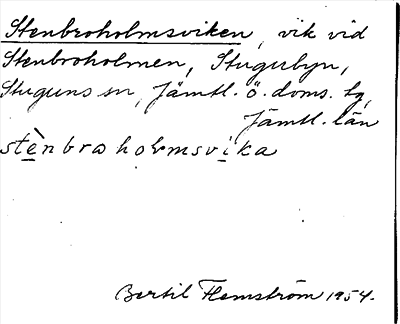 Stenbroholmsviken, vik vid
Stenbroholmen, Stugubyn,
Stuguns sn, Jämtl. ö. doms. tg,
Jämtl. län
stènbraholmsvika
Bertil Flemström 1954.